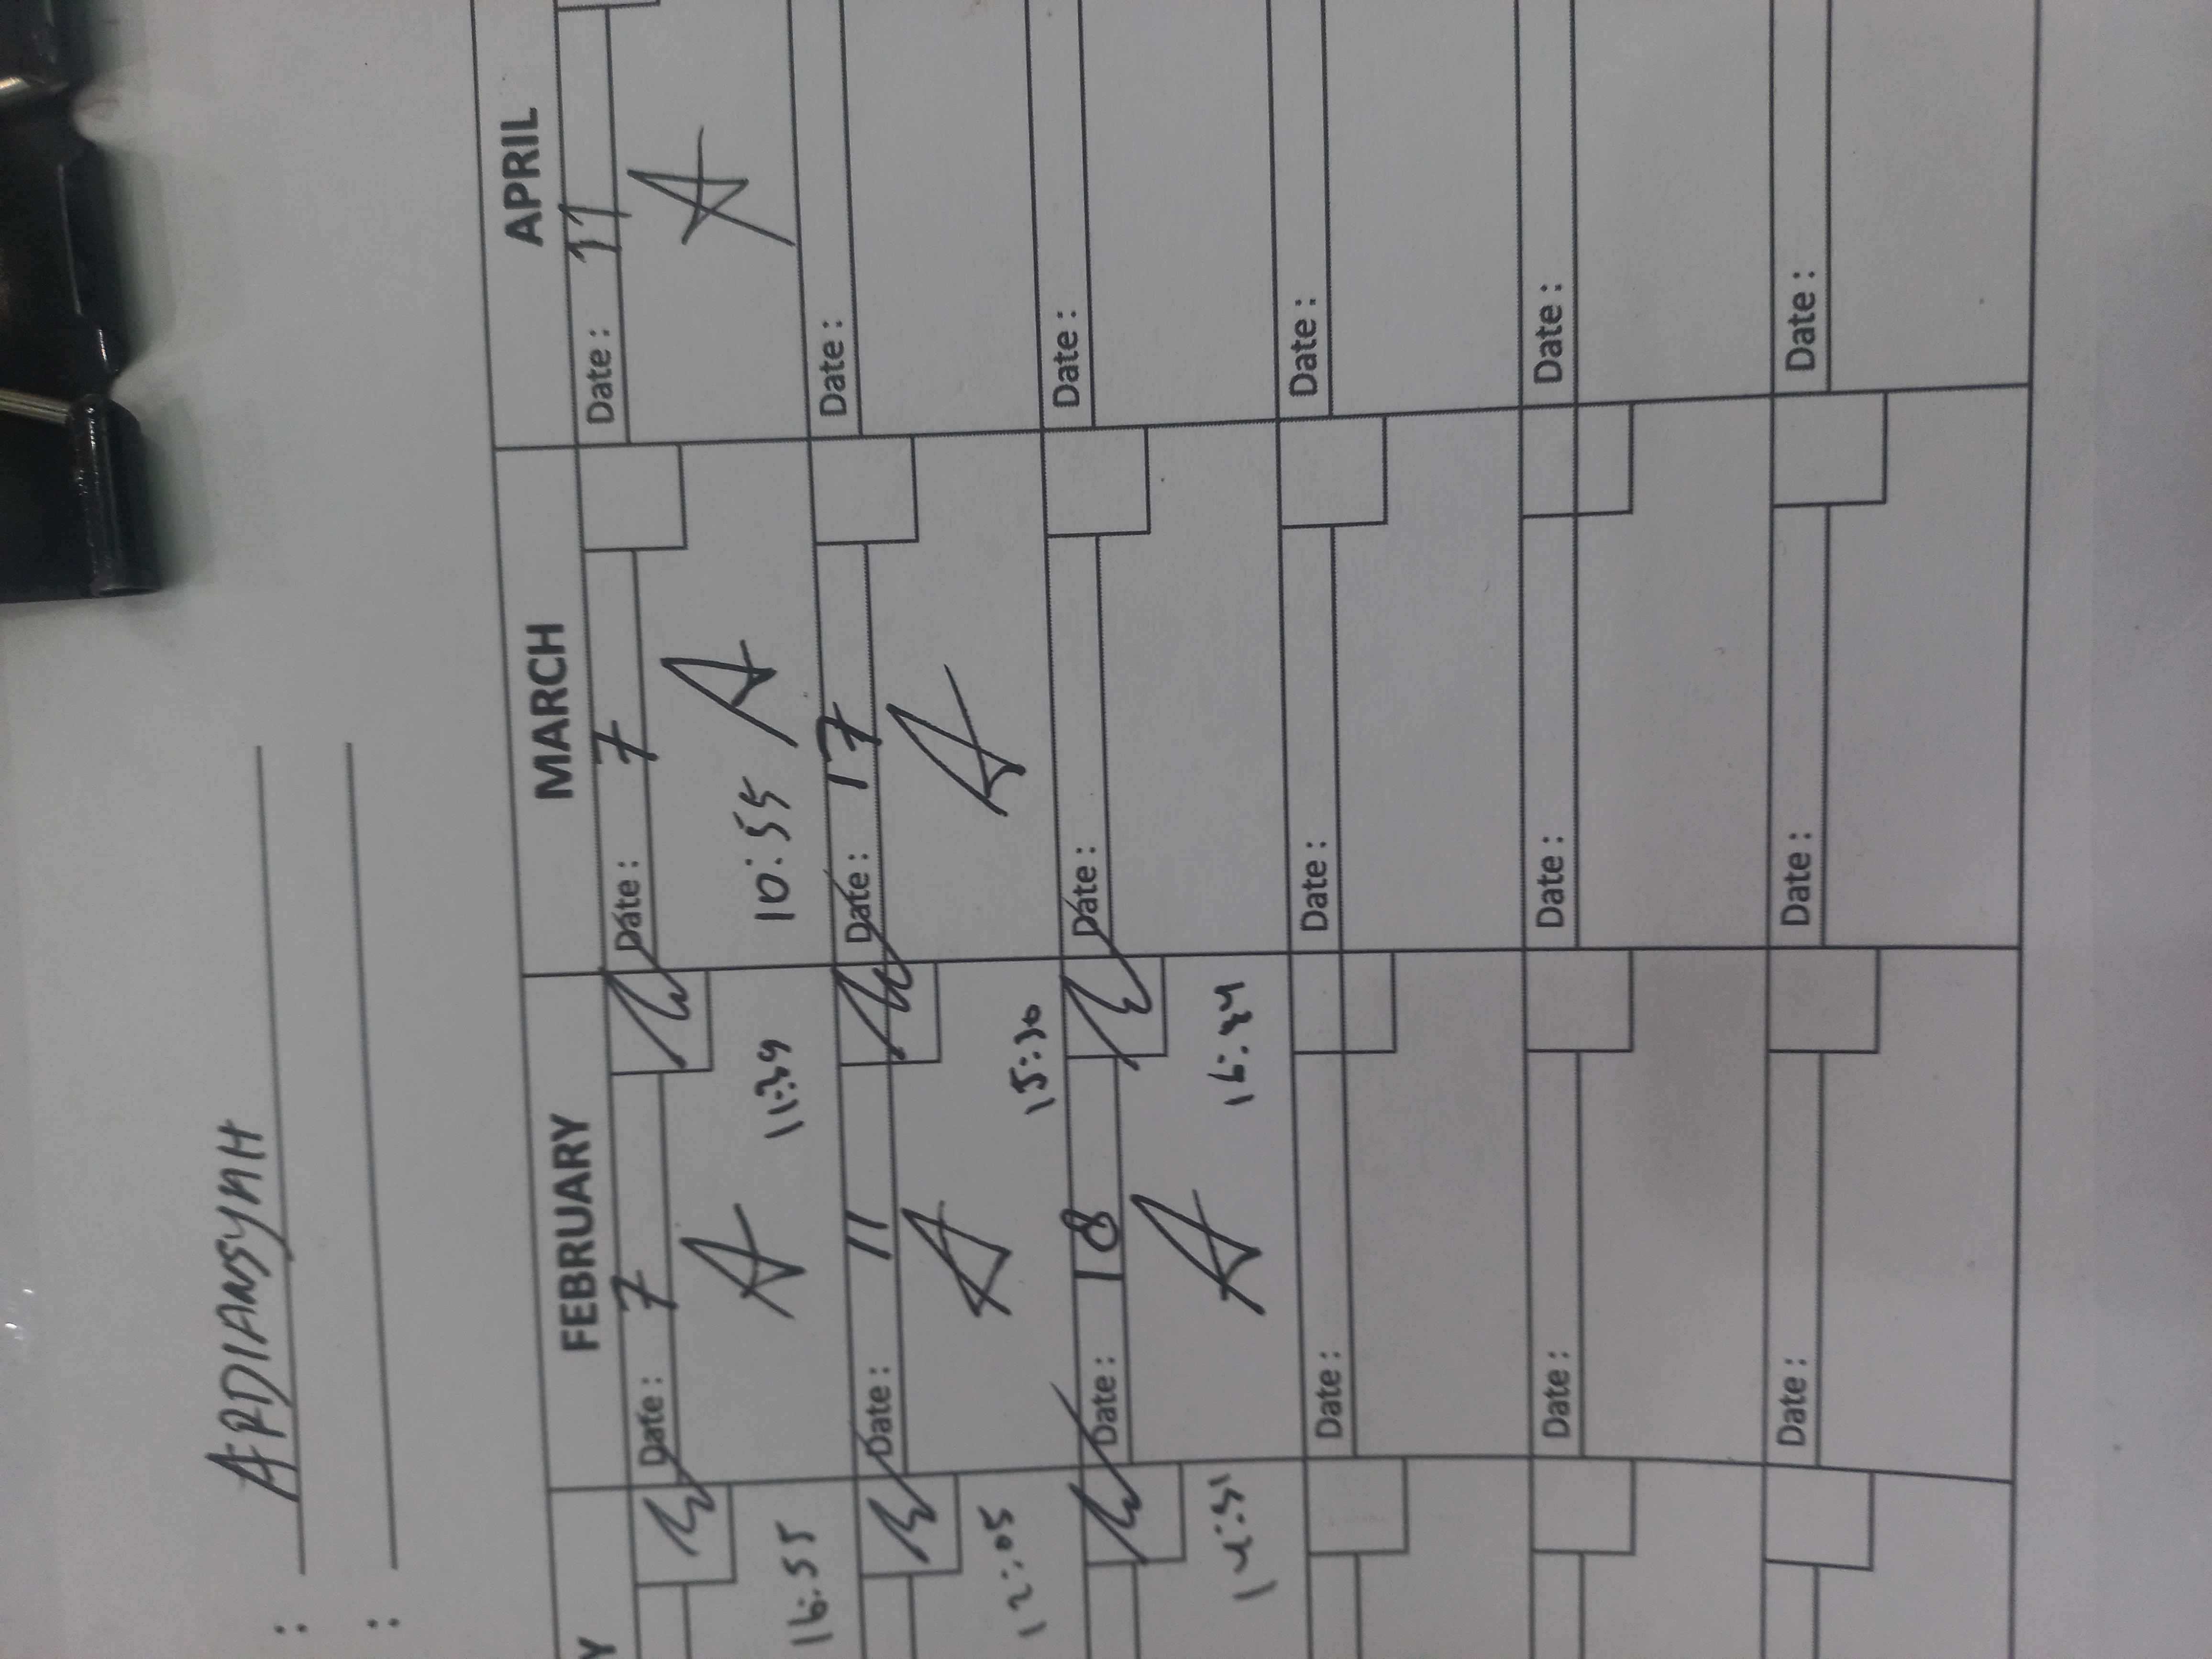 : APDIANSYAH
:
Y FEBRUARY MARCH APRIL
Date : 7 Date : 7 Date : 11
16:55 11:39 10:55
Date : 11 Date : 17 Date :
12:05 15:30
Date : 18 Date : Date :
14:51 16:24
Date : Date : Date :
Date : Date : Date :
Date : Date : Date :